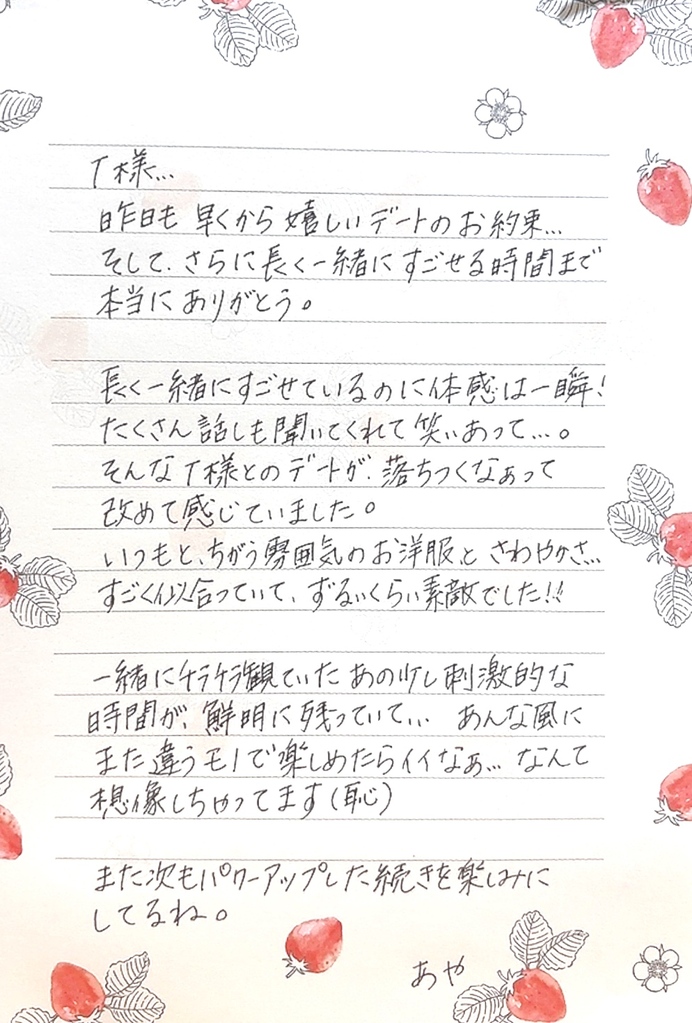 T様…
昨日も 早くから 嬉しいデートのお約束…
そして、さらに長く一緒にすごせる時間まで
本当にありがとう。
長く一緒にすごせているのに体感は一瞬!
たくさん話しも聞いてくれて笑いあって…。
そんなT様とのデートが、落ちつくなぁって
改めて感じていました。
いつもと、ちがう雰囲気のお洋服と さわやかさ…
すごく似合っていて、ずるいくらい素敵でした!!
一緒にチラチラ観ていた あの少し刺激的な
時間が、鮮明に残っていて… あんな風に
また違うモノで楽しめたらイイなぁ… なんて
想像しちゃってます(恥)
また次もパワーアップした続きを楽しみに
してるね。
あや